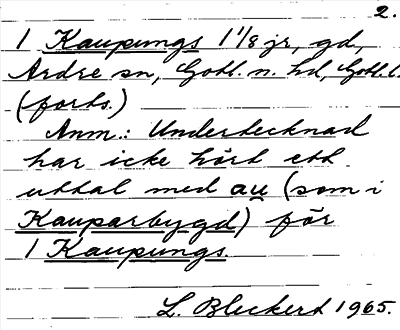 2.
1 Kaupungs 1 1/8 jr, gd,
Ardre sn, Gotl. n. hd, Gotl. l.
(forts.)
Anm.: Undertecknad
har icke hört ett
uttal med au (som i
Kauparbygd) för
1 Kaupungs.
L. Bleckert 1965.